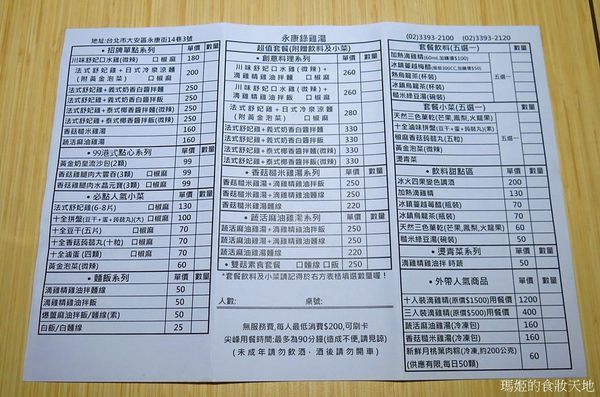 地址:台北市大安區永康街14巷3號
• 招牌單點系列 單價 數量
川味舒妃口水雞(微辣) □椒麻 180
法式舒妃雞+日式冷泉涼麵
(附黃金泡菜) □椒麻 200
法式舒妃雞+義式奶香白醬拌麵
法式舒妃雞+義式奶香白醬拌飯
法式舒妃雞+泰式椰香拌麵(微辣)
法式舒妃雞+泰式椰香拌飯(微辣)
香菇糙米雞湯 160
蔬活麻油雞湯 160
• 99港式點心系列 單價 數量
黃金奶皇流沙包(2顆) 99
香菇雞腿肉大雲吞(3顆) □椒麻 99
香菇雞腿肉水晶元寶(3顆) □椒麻 99
• 必點人氣小菜 單價 數量
法式舒妃雞(6-8片) □椒麻 130
十全拼盤(豆干+蛋+蒟蒻丸) □椒麻 100
十全豆干(五片) □椒麻 70
十全香菇蒟蒻丸(十粒) □椒麻 70
十全滷蛋(四顆) □椒麻 70
黃金泡菜(微辣) 60
• 麵飯系列 單價 數量
滴雞精雞油拌麵線 50
滴雞精雞油拌飯 50
爆薑麻油拌飯/麵線(素) 50
白飯/白麵線 25
永康錄雞湯
超值套餐(附贈飲料及小菜)
• 創意料理系列 單價 數量
川味舒妃口水雞(微辣)+
滴雞精雞油拌麵 □椒麻 260
川味舒妃口水雞(微辣)+
滴雞精雞油拌飯 □椒麻 260
法式舒妃雞+日式冷泉涼麵
(附黃金泡菜) □椒麻 280
法式舒妃雞+義式奶香白醬拌麵 330
法式舒妃雞+義式奶香白醬拌飯 330
法式舒妃雞+泰式椰香拌麵(微辣) 330
法式舒妃雞+泰式椰香拌飯(微辣) 330
• 香菇糙米雞湯系列 單價 數量
香菇糙米雞湯+滴雞精雞油拌飯 250
香菇糙米雞湯+滴雞精雞油麵線 250
• 蔬活麻油雞湯系列 單價 數量
蔬活麻油雞湯+滴雞精雞油拌飯 250
蔬活麻油雞湯+滴雞精雞油麵線 250
• 雙菇素食套餐 □麵線□飯 250
*套餐飲料及小菜請記得於右方表格填選數量喔!
人數: 桌號:
無服務費,每人最低消費$200,可刷卡
尖峰用餐時間:最多為90分鐘(造成不便,請見諒)
(未成年請勿飲酒,酒後請勿開車)
(02)3393-2100 (02)3393-2120
套餐飲料(五選一) 數量
加熱滴雞精(60ml,加購價$100)
冰鎮蔓越梅醋(瓶裝300CC,加購價$50) 五選一
熱烏龍茶(杯裝)
冰鎮烏龍茶(杯裝)
糙米綠豆湯(碗裝)
套餐小菜(五選一) 數量
天然三色藥乾(芒果,鳳梨,火龍果)
十全滷味拼盤(豆干+蛋+蒟蒻丸)(素) 五選一
椒麻香菇蒟蒻丸(五粒)
黃金泡菜(微辣)
燙青菜
• 飲料甜點區 單價 數量
冰火四果變色調酒 200
加熱滴雞精 130
冰鎮蔓越莓醋(瓶裝) 70
冰鎮烏龍茶(瓶裝) 70
天然三色藥乾(芒果,鳳梨,火龍果) 70
糙米綠豆湯(碗裝) 60
• 燙青菜系列 單價 數量
滴雞精雞油拌 時蔬 50
• 外帶人氣商品 單價 數量
十入裝滴雞精(原價$1500)用餐價 1200
三入裝滴雞精(原價$500)用餐價 400
蔬活麻油雞湯(冷凍包) 160
香菇糙米雞湯(冷凍包) 160
新鮮月桃葉肉粽(冷凍,約200公克)
(供應有限,每日50顆) 60
瑪姬的食妝天地